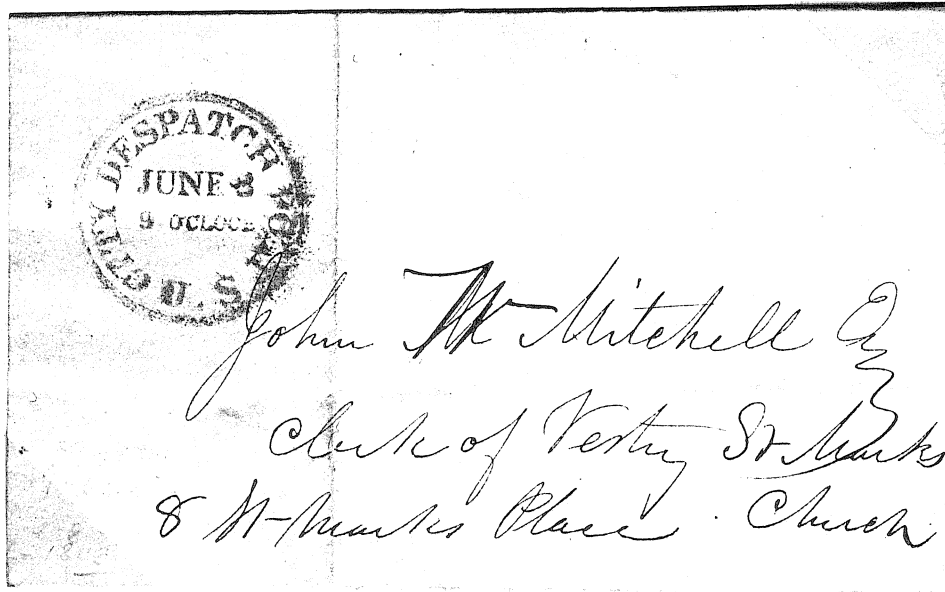 CITY DESPATCH POST
U.S
JUNE 3
9 OCLOCK
John W Mitchell Esq
Clerk of Vestry St Marks
8 St-Marks Place. Church